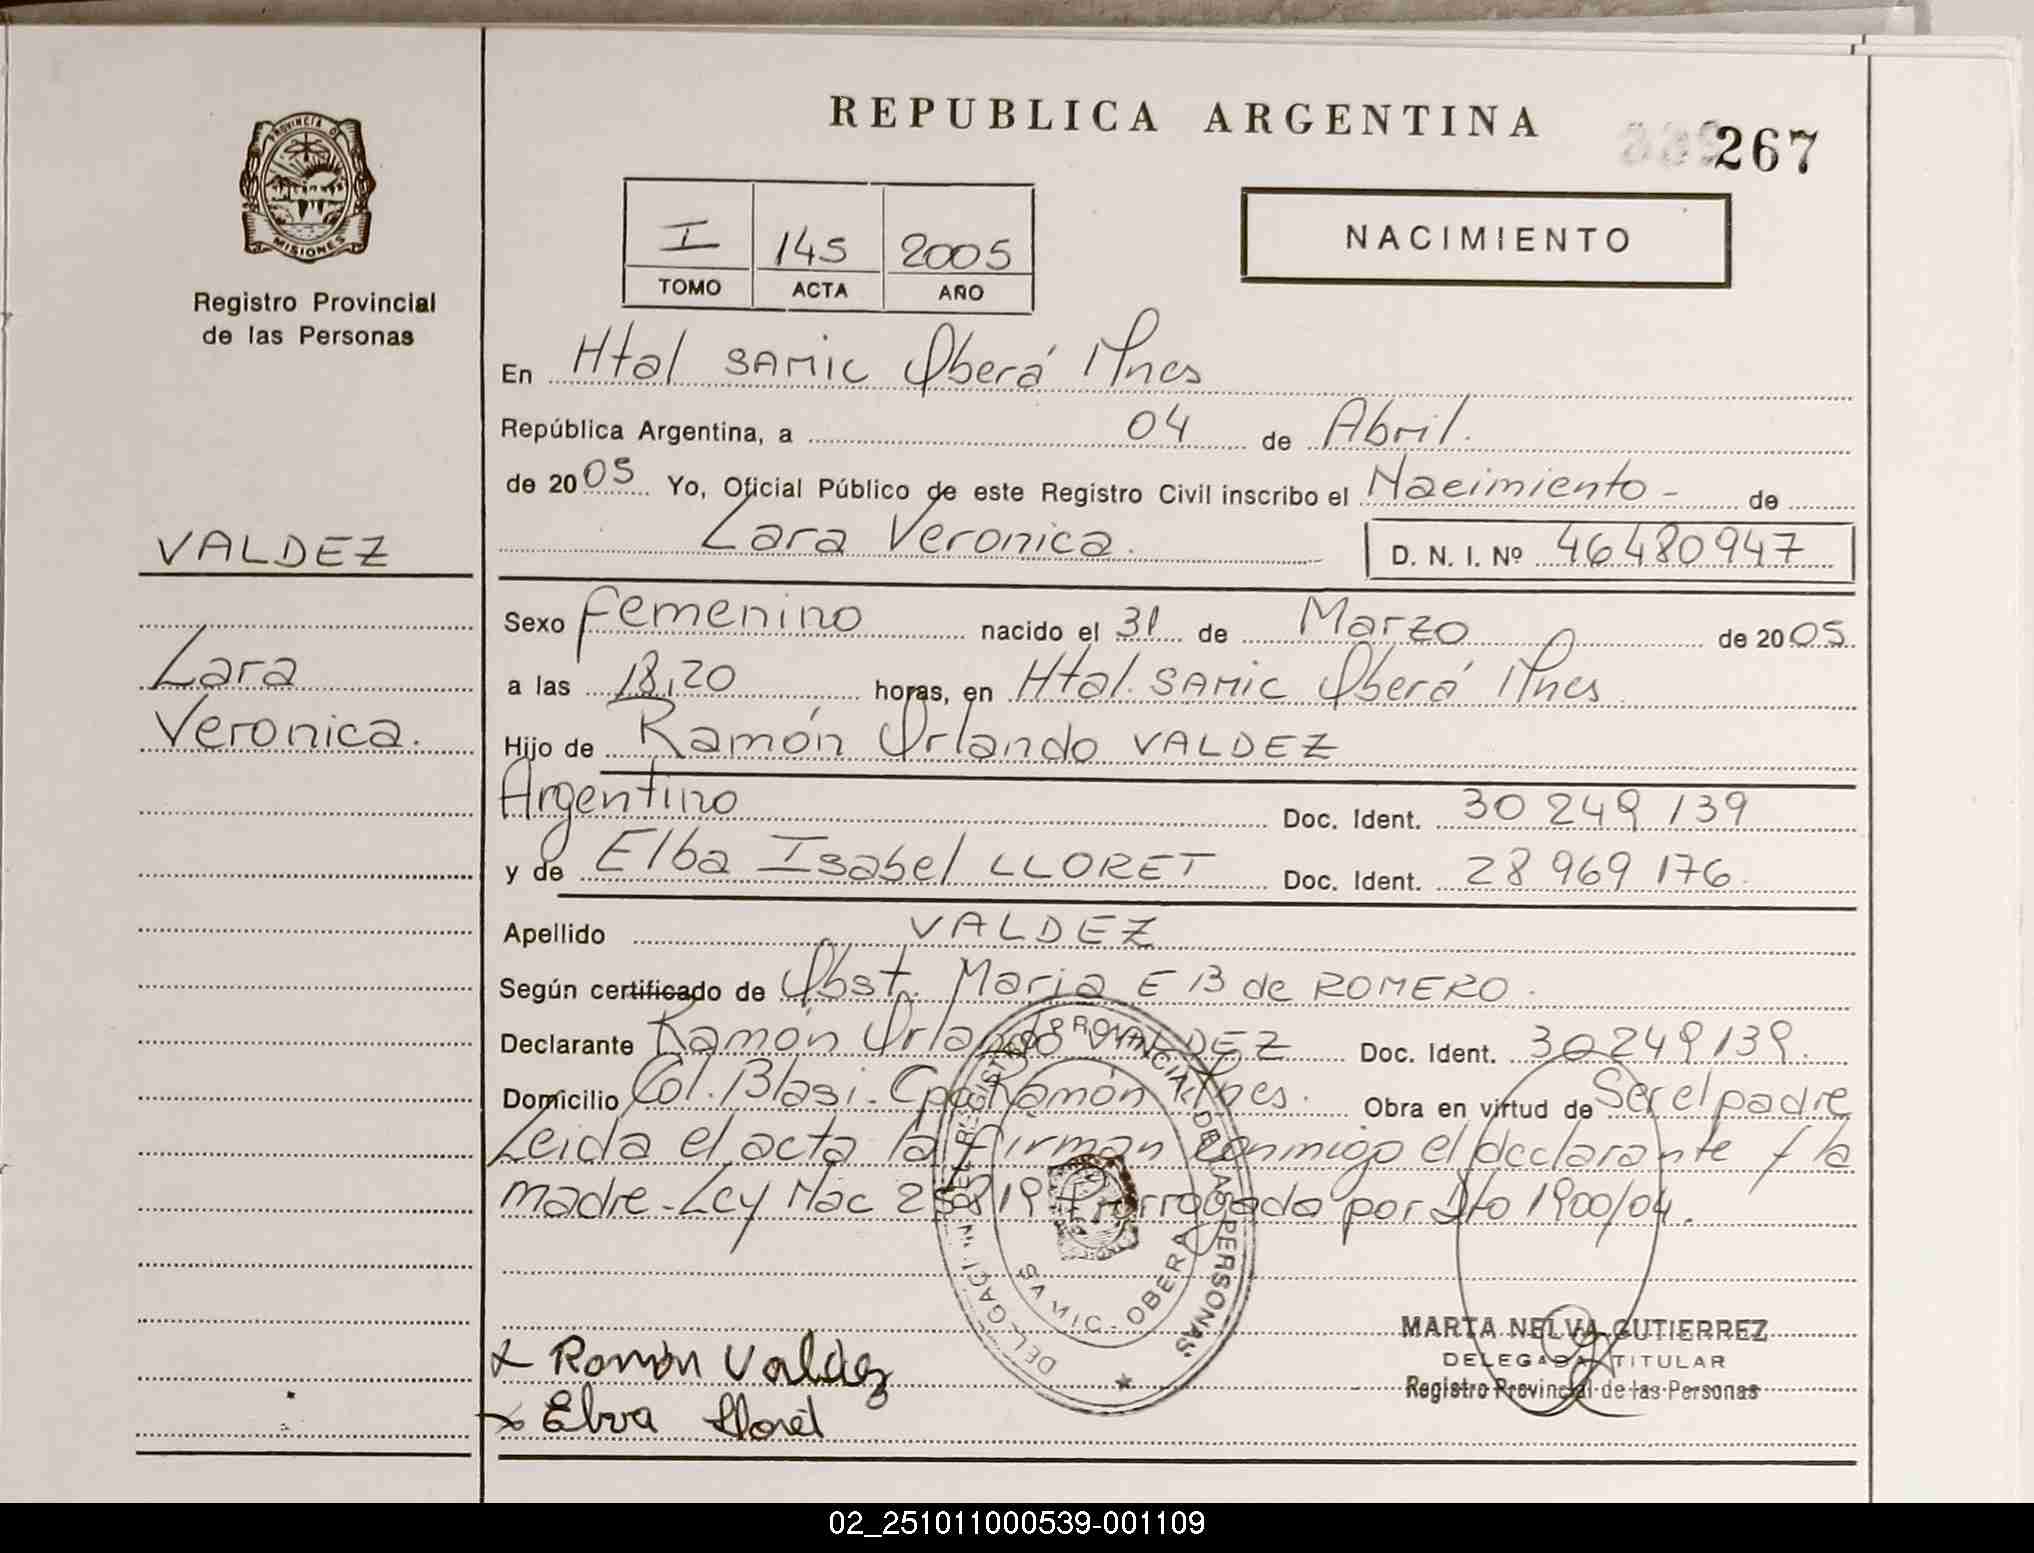 REPUBLICA ARGENTINA
267
PROVINCIA DE
MISIONES
Registro Provincial
de las Personas
I 145 2005
TOMO ACTA AÑO
NACIMIENTO
En Htal SAMIC Oberá Mnes
República Argentina, a 04 de Abril.
de 2005 Yo, Oficial Público de este Registro Civil inscribo el Nacimiento - de
Lara Veronica. D. N. I. Nº 46480947
VALDEZ
Lara
Veronica.
Sexo Femenino nacido el 31 de Marzo de 2005
a las 18,20 horas, en Htal. SAMIC Oberá Mnes
Hijo de Ramón Orlando VALDEZ
Argentino Doc. Ident. 30 249 139
y de Elba Isabel LLORET Doc. Ident. 28 969 176.
Apellido VALDEZ
Según certificado de Obst. Maria E B de ROMERO.
Declarante Ramón Orlando VALDEZ Doc. Ident. 30249139.
Domicilio Col. Blasi - Cpo Ramón Mnes. Obra en virtud de Ser el padre
Leida el acta la firman conmigo el declarante y la
madre - Ley Nac 25819 Prorrogada por Dto 1900/04.
DEL REGISTRO PROVINCIAL DE LAS PERSONAS
SAMIC - OBERA
Ramón Valdez
Elva Lloret
MARTA NELVA GUTIERREZ
DELEGADA TITULAR
Registro Provincial de las Personas
02_251011000539-001109